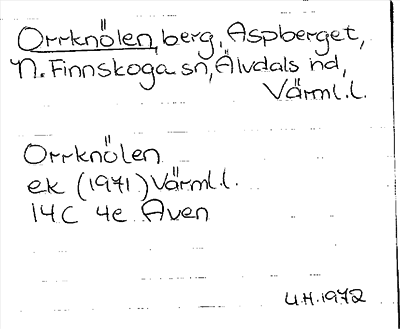 Orrknölen, berg, Aspberget,
N. Finnskoga sn, Älvdals hd,
Värml.l.
Orrknölen
ek (1971) Värml.l.
14C 4e Aven
U.H. 1972